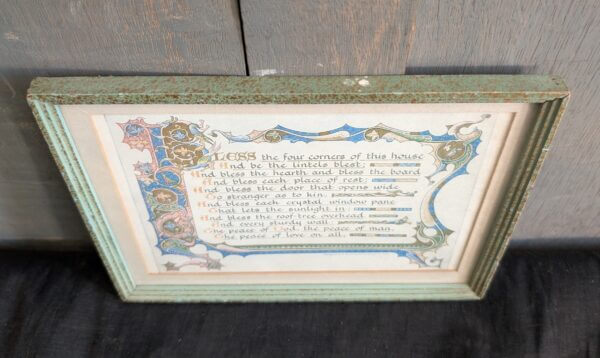 BLESS the four corners of this house
And be the lintels blest;
And bless the hearth and bless the board
And bless each place of rest;
And bless the door that opens wide
To stranger as to kin;
And bless each crystal window pane
That lets the sunlight in;
And bless the roof-tree overhead
And every sturdy wall.
The peace of God, the peace of man,
The peace of love on all.